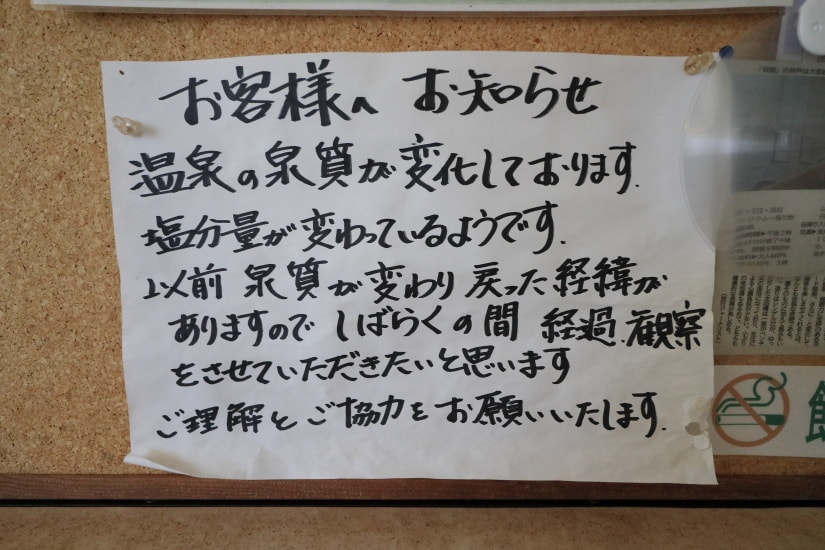 お客様へ お知らせ
温泉の泉質が変化しております.
塩分量が変わっているようです.
以前 泉質が変わり 戻った経緯が
ありますので しばらくの間 経過.観察
をさせていただきたいと思います
ご理解とご協力をお願いいたします.